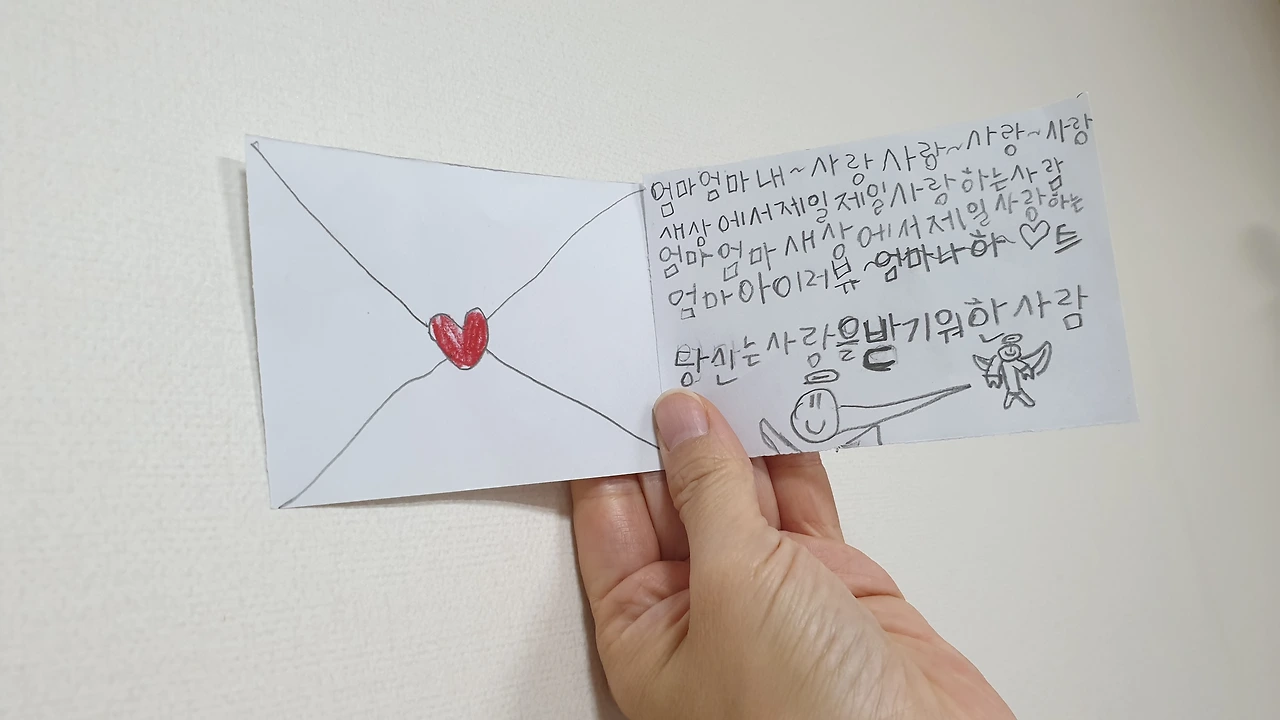 엄마엄마 내~사랑 사랑~사랑~사랑
새상에서제일제일사랑하는사람
엄마엄마새상에서제일사랑하는
엄마아이러뷰~엄마나하~♡트
당신는사람을밤기워한사람